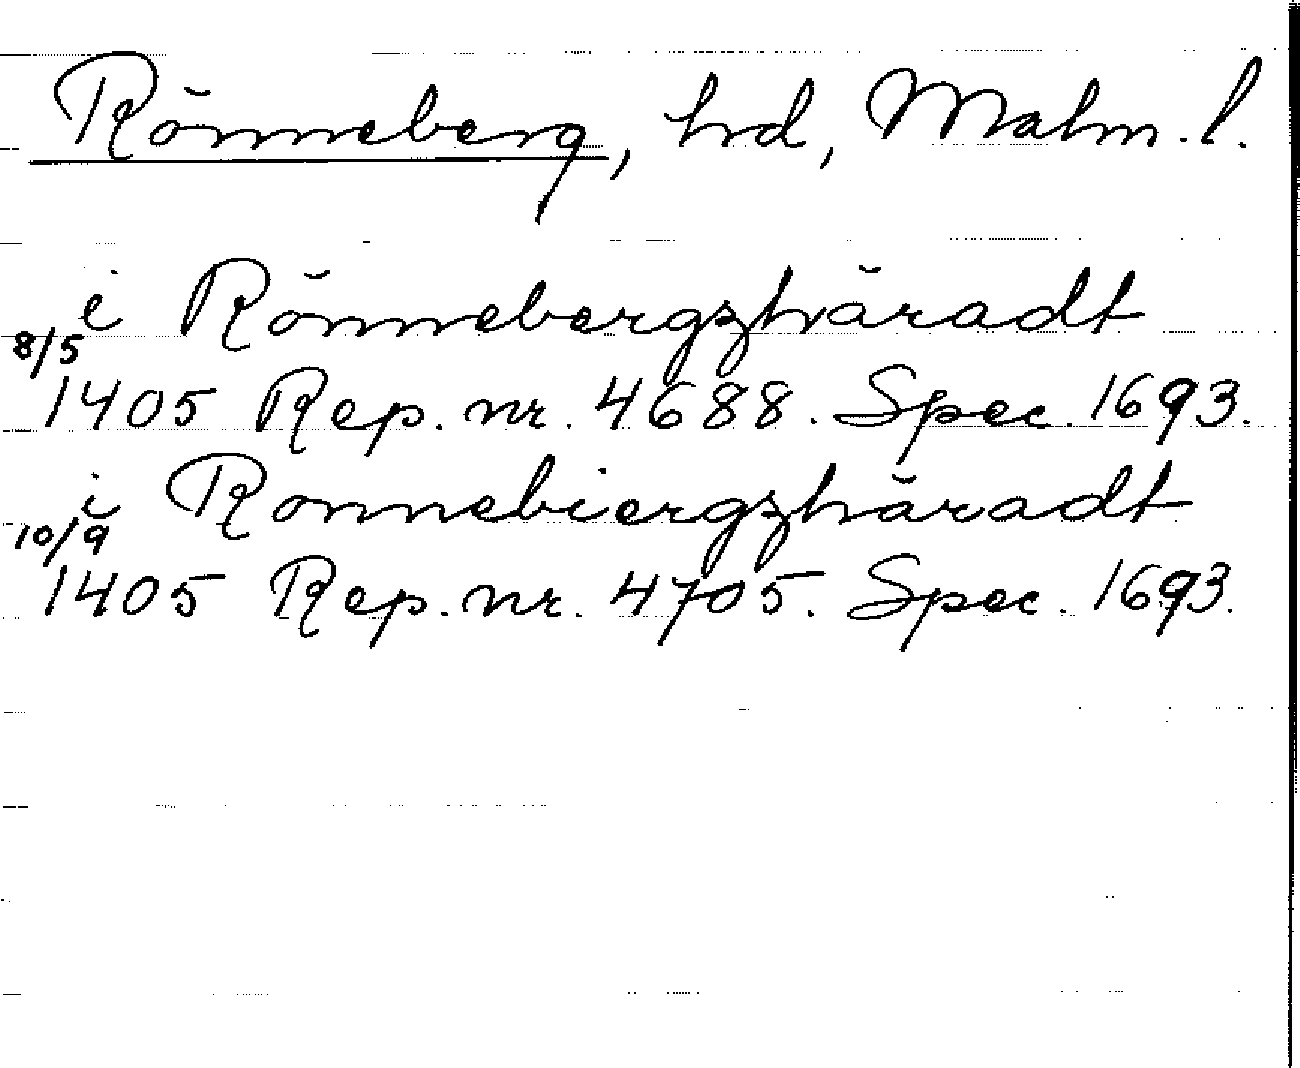 Rönneberg, hd, Malm. l.
i Rönnebergzhäradt
8/5
1405 Rep. nr. 4688. Spec. 1693.
i Ronnebiergzhäradt
10/9
1405 Rep. nr. 4705. Spec. 1693.